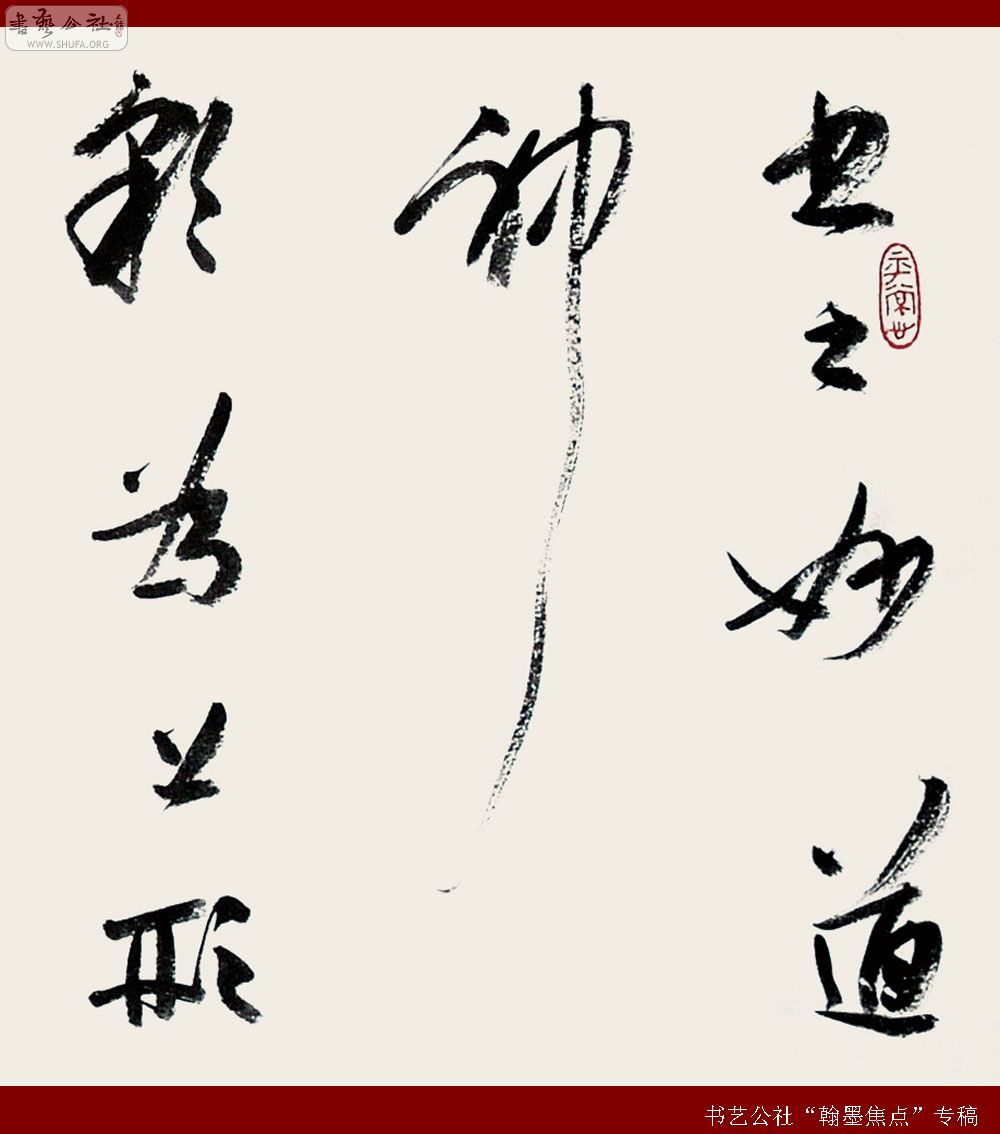 書藝公社
WWW.SHUFA.ORG
书之妙道
神
彩为上形
书艺公社“翰墨焦点”专稿